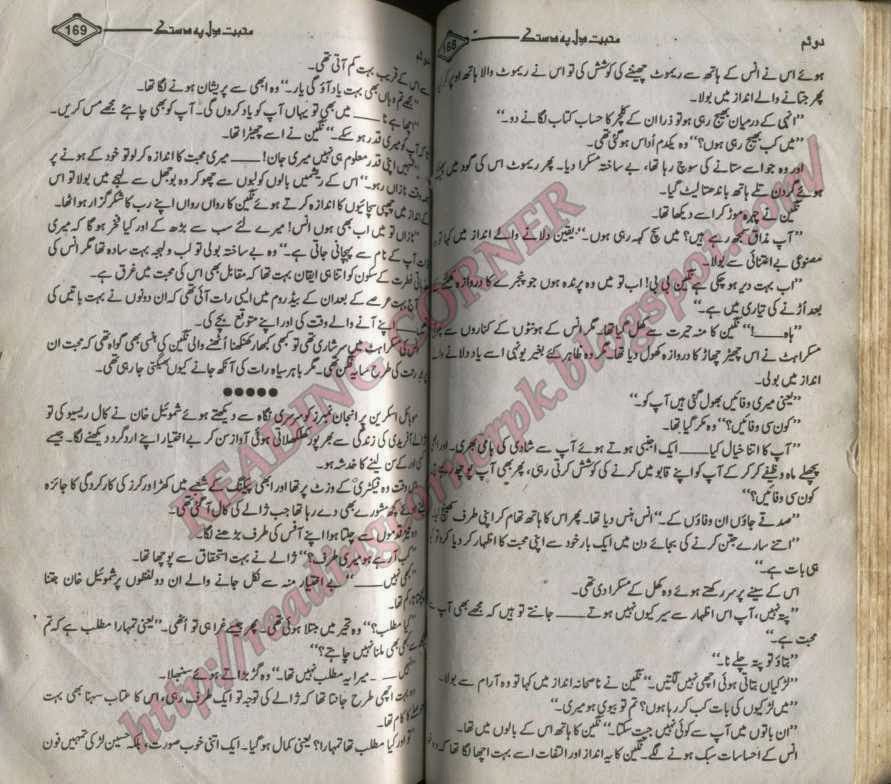 دوئم
محبت دل پہ دستک
168
ہوئے اس نے انس کے ہاتھ سے ریموٹ چھیننے کی کوشش کی تو انس نے ریموٹ والا ہاتھ اوپر کر لیا
پھر جتانے والے انداز میں بولا۔
"انہی کے درمیان بھیج رہی ہو تو ذرا ان کے کلچر کا حساب کتاب لگانے دو۔"
"میں کب بھیج رہی ہوں؟" وہ یکدم اُداس ہو گئی تھی۔
اور وہ جو اسے ستانے کی سوچ رہا تھا، بے ساختہ مسکرا دیا۔ پھر ریموٹ اس کی گود میں
ہوئے گردن تلے ہاتھ باندھتا لیٹ گیا۔
نگین نے چہرہ موڑ کر اسے دیکھا تھا۔
"آپ مذاق سمجھ رہے ہیں؟ میں سچ کہہ رہی ہوں۔" یقین دلانے والے انداز میں کہا تو وہ
مصنوعی بے اعتنائی سے بولا۔
"اب بہت دیر ہو چکی ہے نگین بی بی! اب تو میں وہ پرندہ ہوں جو پنجرے کا دروازہ کھلنے کے
بعد اُڑنے کی تیاری میں ہے۔"
"ہاہ ـــــ!" نگین کا منہ حیرت سے کھل گیا تھا۔ مگر انس کے ہونٹوں کے کناروں سے
مسکراہٹ نے اس چھیڑ چھاڑ کا دروازہ کھول دیا تھا مگر وہ ظاہر کئے بغیر یونہی اسے یاد دلانے والے
انداز میں بولی۔
"یعنی میری وفائیں بھول گئی ہیں آپ کو۔"
"کون سی وفائیں؟" وہ مکر گیا تھا۔
"آپ کا اتنا خیال کیا ـــــ ایک اجنبی ہوتے ہوئے آپ سے شادی کی ہامی بھری۔ اور
پچھلے ماہ وظیفے کر کر کے آپ کو اپنے قابو میں کرنے کی کوشش کرتی رہی، پھر بھی آپ پوچھ رہے
کون سی وفائیں؟"
"صدقے جاؤں ان وفاؤں کے۔" انس ہنس دیا تھا۔ پھر اس کا ہاتھ تھام کر اپنی طرف کھینچ لیا۔
"اتنے سارے جتن کرنے کی بجائے دن میں ایک بار خود سے اپنی محبت کا اظہار کر دیا کرو تو
ہی بات ہے۔"
اس کے سینے پر سر رکھتے ہوئے وہ کھل کے مسکرا دی تھی۔
"پتہ نہیں، آپ اس اظہار سے سیر کیوں نہیں ہوتے ـــــ جانتے تو ہیں کہ مجھے بھی آپ سے
محبت ہے۔"
"بتاؤ تو پتہ چلے نا۔"
"لڑکیاں بتاتی ہوئی اچھی نہیں لگتیں۔" نگین نے ناصحانہ انداز میں کہا تو وہ آرام سے بولا۔
"میں لڑکیوں کی بات کب کر رہا ہوں؟ تم تو بیوی ہو میری۔"
"ان باتوں میں آپ سے کوئی نہیں جیت سکتا۔" نگین کا ہاتھ اس کے بالوں میں تھا۔
انس کے احساسات سبک ہونے لگے۔ نگین کا یہ انداز اور التفات اسے بہت اچھا لگا تھا کہ وہ
محبت دل پہ دستک
169
دوئم
سے اس کے قریب بہت کم آتی تھی۔
"مجھے تم وہاں بھی بہت یاد آؤ گی یار۔" وہ ابھی سے پریشان ہونے لگا تھا۔
"اچھا ہے نا ـــــ میں بھی تو یہاں آپ کو یاد کروں گی۔ آپ کو بھی چاہئے مجھے مس کریں۔
تاکہ آپ کو میری قدر ہو سکے۔" نگین نے اسے چھیڑا تھا۔
"تمہیں اپنی قدر معلوم ہی نہیں میری جان! ـــــ میری محبت کا اندازہ کر لو تو خود کے ہونے پر
ہمہ وقت نازاں رہو۔" اس کے ریشمیں بالوں کو لبوں سے چھو کر وہ بوجھل سے لہجے میں بولا تو اس
کے انداز میں چھپی سچائیوں کا اندازہ کرتے ہوئے نگین کا رواں رواں اپنے رب کا شکر گزار ہوا تھا۔
"نازاں تو میں اب بھی ہوں انس! میرے لئے سب سے بڑھ کے اور کیا فخر ہو گا کہ میری
ذات آپ کے نام سے پہچانی جاتی ہے۔" وہ بے ساختہ بولی تو لب و لہجہ بہت سادہ تھا مگر انس کی
فطرت کے سکون کو اتنا ہی ایقان بہت تھا کہ مقابل بھی اس کی محبت میں غرق ہے۔
آج بہت عرصے کے بعد ان کے بیڈ روم میں ایسی رات آئی تھی کہ ان دونوں نے بہت باتیں کی
تھیں ـــــ اپنے آنے والے وقت کی اور اپنے متوقع بچے کی۔
انس کی مسکراہٹ میں سرشاری تھی تو کبھی کبھار کھنکھنا اُٹھنے والی نگین کی ہنسی بھی گواہ تھی کہ محبت ان
پر درخت کی طرح سایہ فگن تھی۔ مگر باہر سیاہ رات کی آنکھ جانے کیوں بھیگتی جا رہی تھی۔
●●●●●
موبائل اسکرین پر انجان نمبرز کو سرسری نگاہ سے دیکھتے ہوئے شموئیل خان نے کال ریسیو کی تو
ژالے آفریدی کی زندگی سے بھرپور کھلکھلاتی ہوئی آواز سن کر بے اختیار اپنے اردگرد دیکھنے لگا۔ جیسے
کسی اور کے سن لینے کا خدشہ ہو۔
اس وقت وہ فیکٹری کے وزٹ پر تھا اور ابھی پیکنگ کے شعبے میں کھڑا ورکرز کی کارکردگی کا جائزہ
لیتے ہوئے کچھ مشورے بھی دے رہا تھا جب ژالے کی کال آ گئی تھی۔
وہ تیز قدموں سے چلتا ہوا اپنے آفس کی طرف بڑھنے لگا۔
"کب آ رہے ہو میری طرف؟" ژالے نے بہت استحقاق سے پوچھا تھا۔
"کبھی نہیں ـــــ" بے اختیار منہ سے نکل جانے والے ان دو لفظوں پر شموئیل خان جتنا
پچھتاتا، کم تھا۔
"کیا مطلب؟" وہ تحیر میں مبتلا ہوئی تھی۔ پھر جیسے غرا ہی تو اُٹھی۔ "یعنی تمہارا مطلب ہے کہ تم
مجھ سے کبھی بھی ملنا نہیں چاہتے؟"
"نہیں ـــــ میرا یہ مطلب نہیں تھا۔" وہ گڑبڑاتے ہوئے سنبھلا۔
وہ بہت اچھی طرح جانتا تھا کہ ژالے کی توجہ تو ایک طرف رہی، اس کا عتاب سہنا بھی بہت
حوصلے کا کام تھا۔
"تو اور کیا مطلب تھا تمہارا؟ یعنی کمال ہو گیا۔ ایک اتنی خوب صورت، بلکہ حسین لڑکی تمہیں فون
READING CORNER
http://readingcornerpk.blogspot.com/